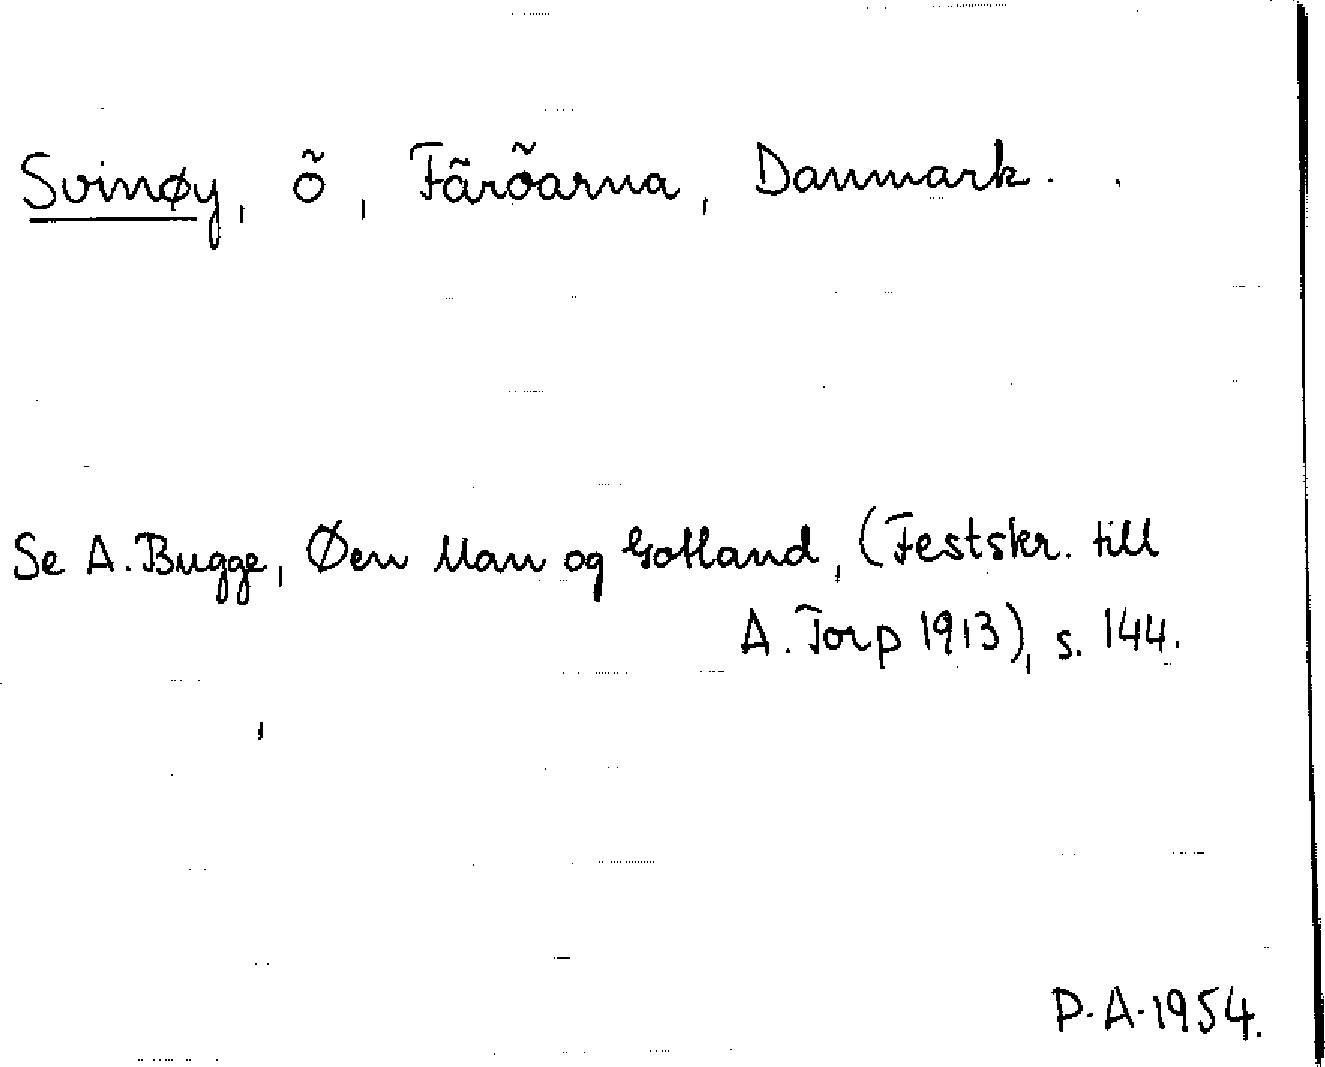 Svinøy, ö, Färöarna, Danmark.
Se A. Bugge, Øen Man og Gotland, (Festskr. till
A. Torp 1913), s. 144.
P.A. 1954.